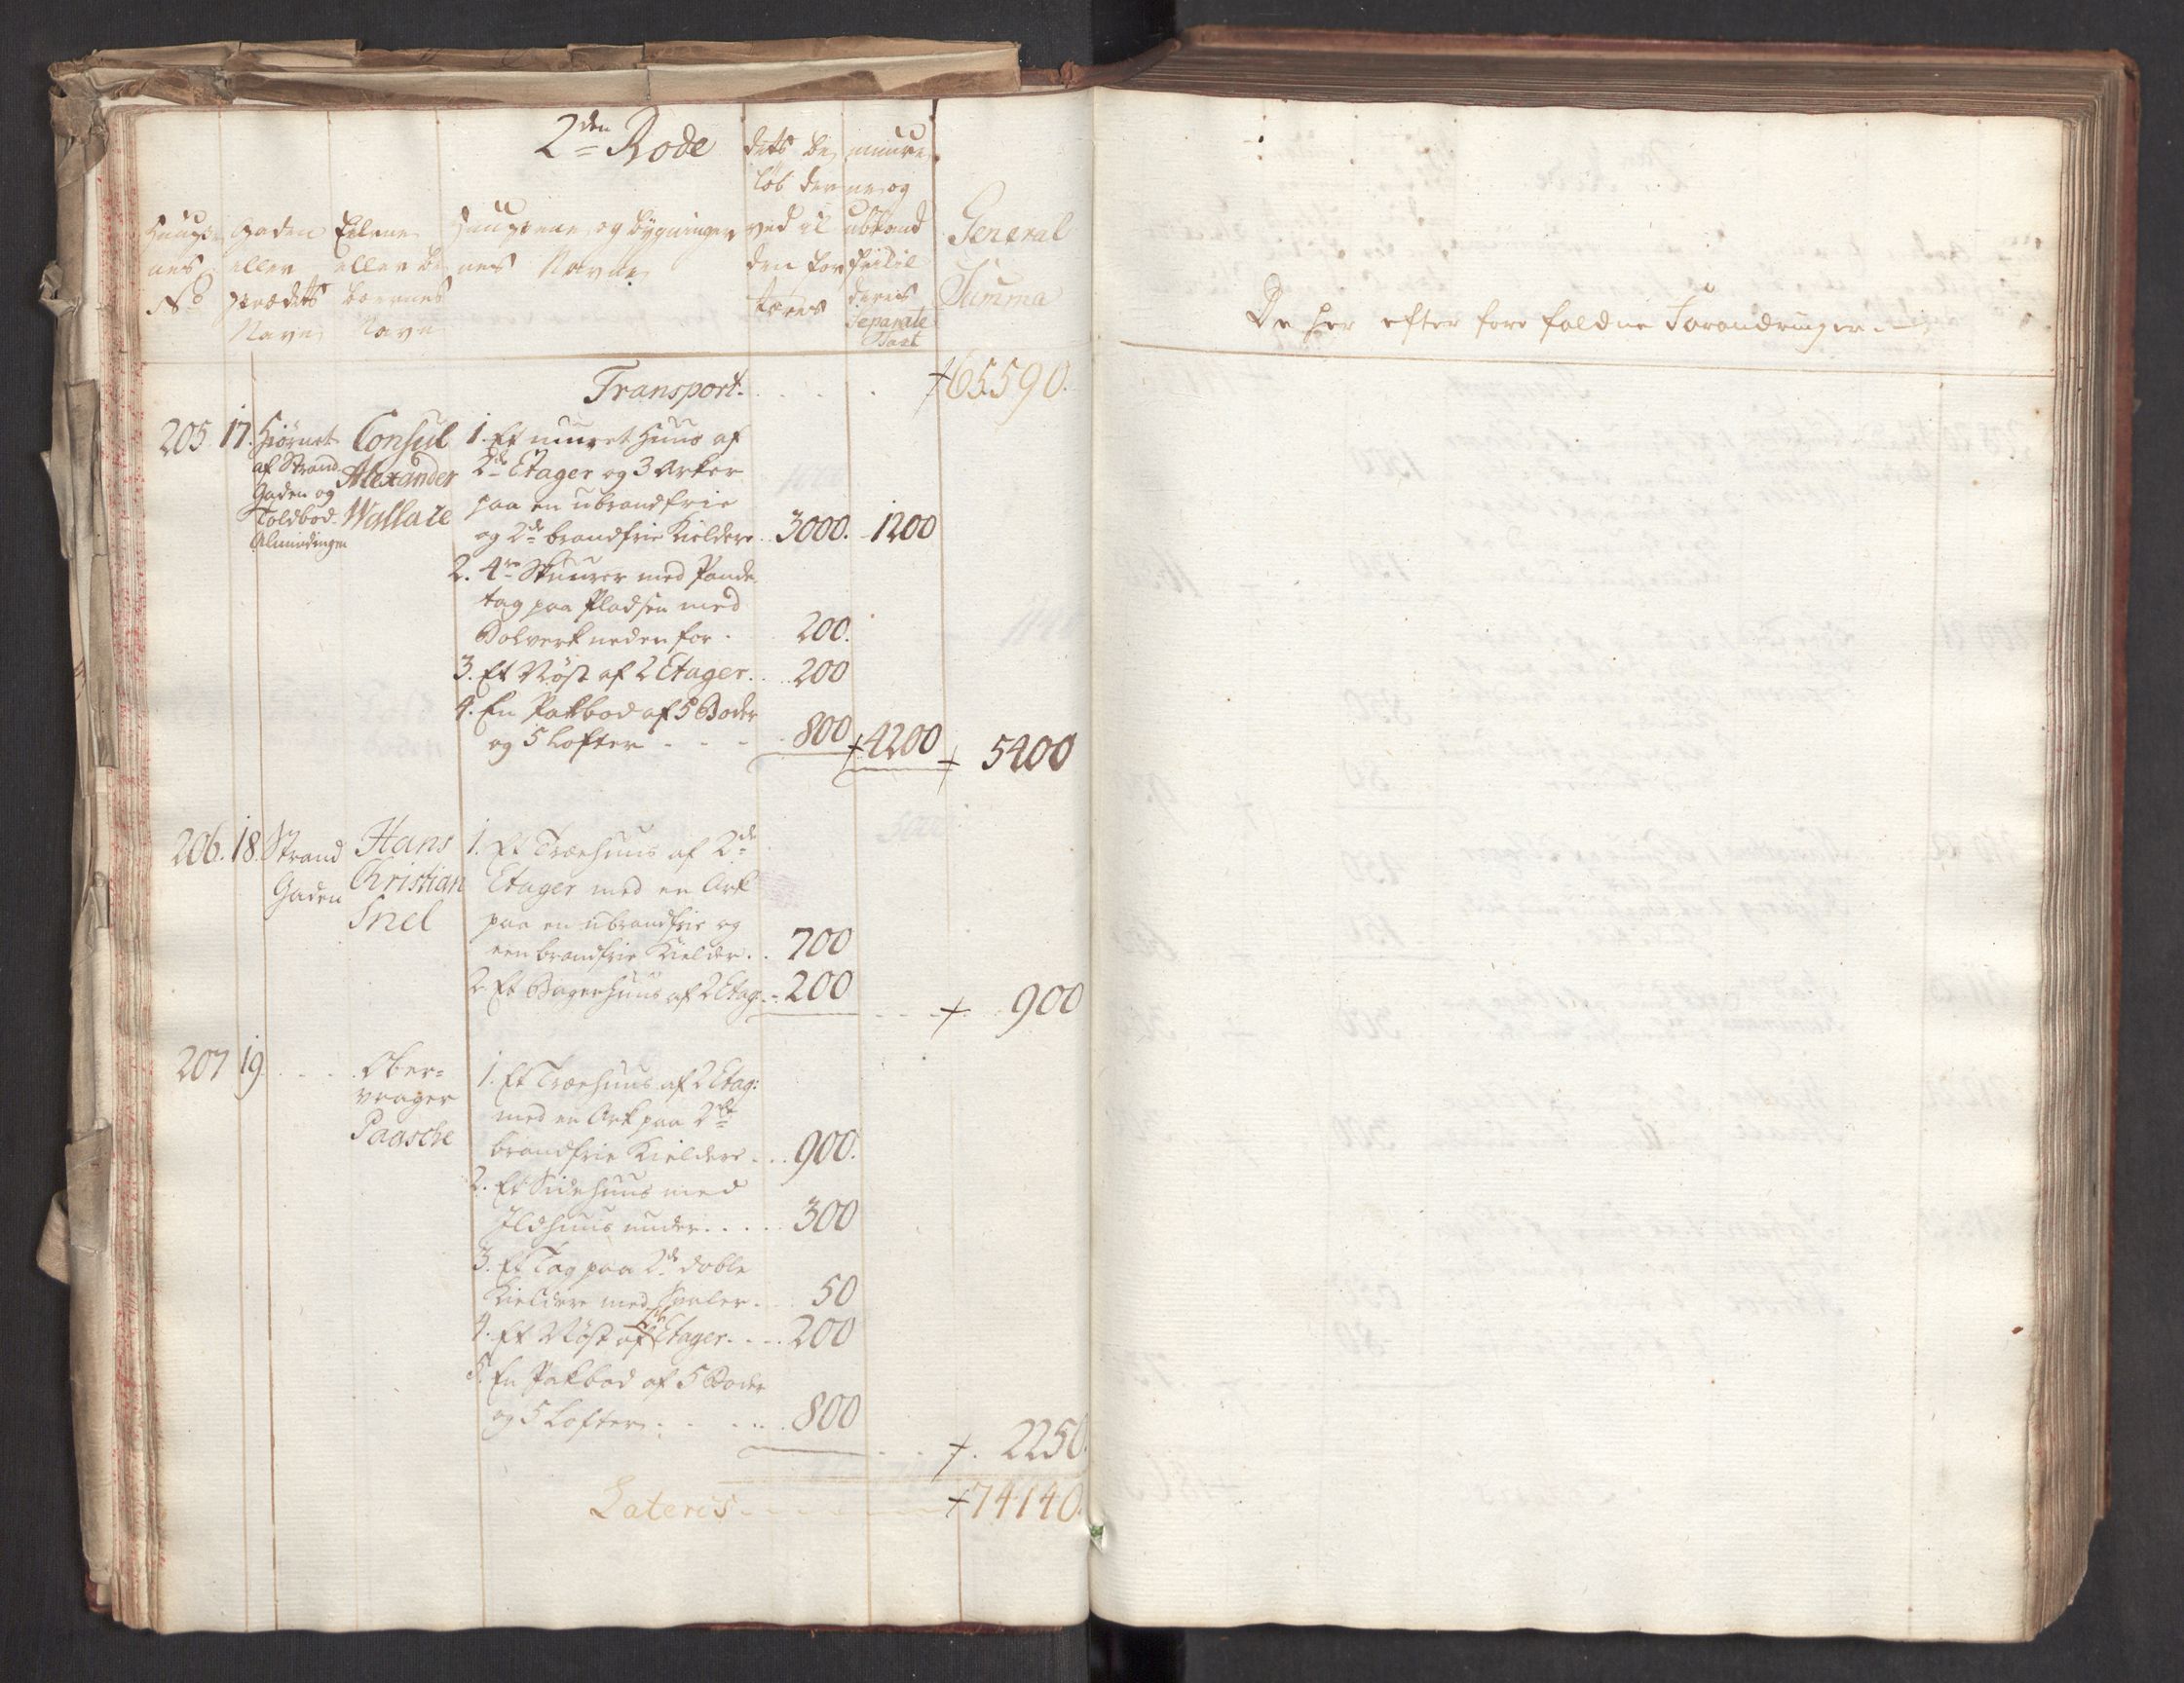 2den Rode
dets be muure
løb der ne og
Huuse Gaden Eierne Huusene og bygninger ved il ubrand
nes eller eller be nes Navne den for frie til
No strædets boernes tæres deris
Navn Navn Separate
Taxt
General
Summa
Transport. . . . 65590.
205 17. Hiørnet Consul 1. Et muuret Huus af
af Strand Alexander 2de Etager og 3 Arker
Gaden og Wallace paa en ubrandfrie
Toldbod og 2de brandfrie Kieldere 3000. 1200
Almindingen
2. 4re Skuurer med Pande
tag paa Pladsen med
Bolverk neden for . 200.
3. Et Nøst af 2 Etager . . 200
4. En Pakbod af 5 Boder
og 5 Lofter - - - 800 4200 5400
206. 18. Strand Hans 1. Et Træehuus af 2de
Gaden Christian Etager med en Ark
Snel paa en ubrandfrie og
een brandfrie Kielder . . 700
2. Et Bagerhuus af 2 Etag: 200 900
207 19. - - - Ober= 1. Et Træehuus af 2 Etag:
vrager med en Ark paa 2de
Paasche brandfrie Kieldere . . 900.
2. Et Sidehuus med
Ildhuus under . . . . 300
3. Et Tag paa 2de doble
Kieldere med Svaler . 50
4. Et Nøst af 2de Etager . . . 200
5. En Pakbod af 5 Boder
og 5 Lofter . . . . 800
2250.
Lateris . . . 74140.
De her efter fore faldne Forandringer. -